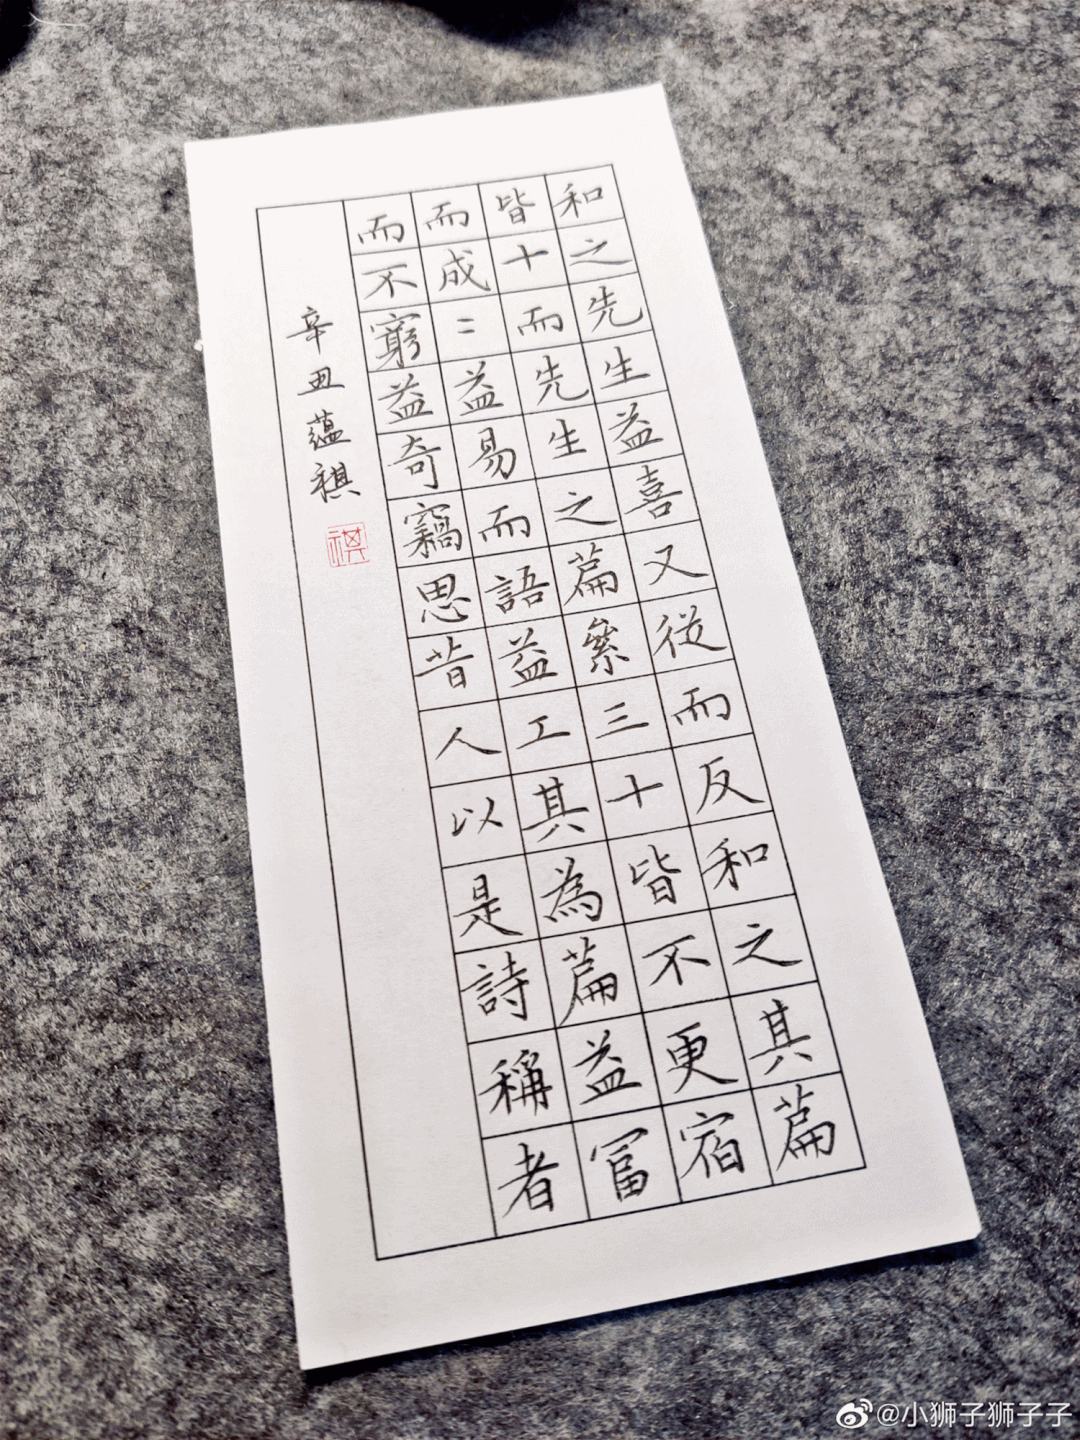 和之先生益喜又從而反和之其篇
皆十而先生之篇絫三十皆不更宿
而成二益易而語益工其為篇益富
而不窮益奇竊思昔人以是詩稱者
辛丑蘊祺
祺
@小狮子狮子子